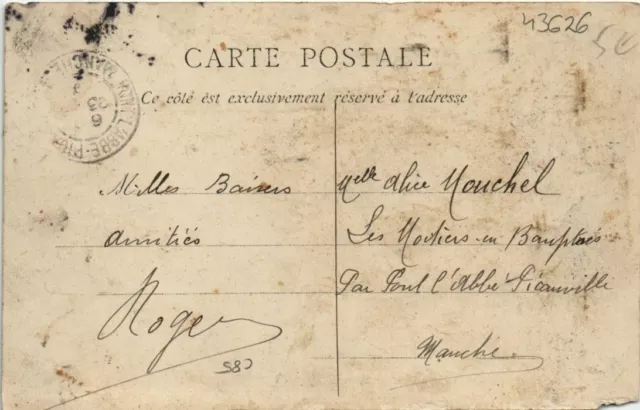 43626
CARTE POSTALE
Ce côté est exclusivement réservé à l'adresse
6
03
MANCHE
Milles Baisers
amitiés
Roger
582
Melle Alice Mouchel
Les Moitiers en Bauptois
Par Pont l'Abbé Picauville
Manche